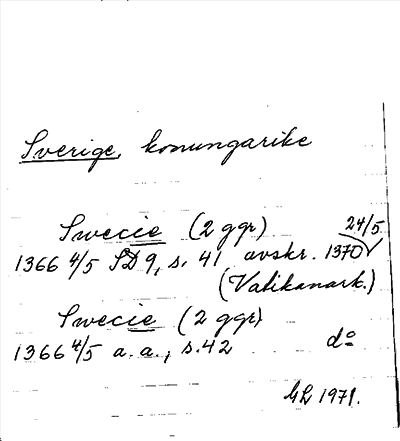 Sverige, konungarike
Swecie (2 ggr) 24/5
1366 4/5 SD 9, s. 41 avskr. 1370
(Vatikanark.)
Swecie (2 ggr)
1366 4/5 a. a., s. 42 do
GL 1971.